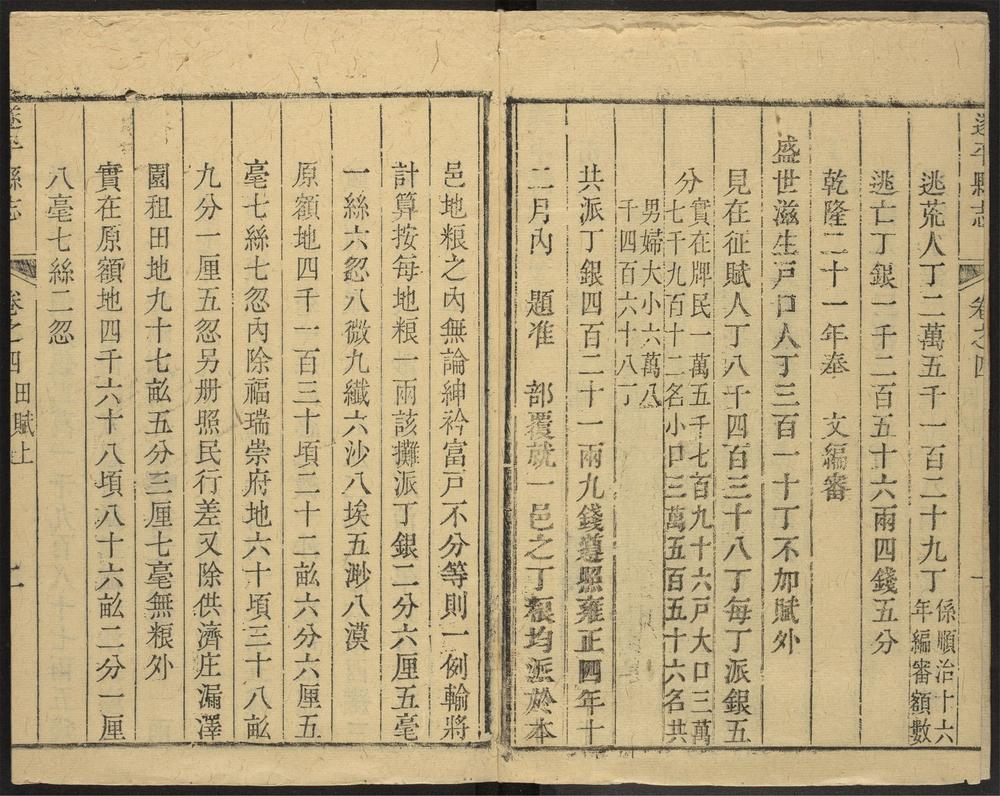 遂平縣志
卷之四
一
逃荒人丁二萬五千一百二十九丁
係順治十六
年編審額數
逃亡丁銀一千二百五十六兩四錢五分
乾隆二十一年奉　文編審
盛世滋生戸口人丁三百一十丁不加賦外
見在征賦人丁八千四百三十八丁每丁派銀五
分
實在牌民一萬五千七百九十六戸大口三萬
七千九百十二名小口三萬五百五十六名共
男婦大小六萬八
千四百六十八丁
共派丁銀四百二十一兩九錢遵照雍正四年十
二月內　題准　部覆就一邑之丁粮均派於本
邑地粮之內無論紳衿富戸不分等則一例輸將
計算按每地粮一兩該攤派丁銀二分六厘五毫
一絲六忽八微九纖六沙八埃五渺八漠
原額地四千一百三十頃二十二畝六分六厘五
毫七絲七忽內除福瑞崇府地六十頃三十八畝
九分一厘五忽另册照民行差又除供濟庄漏澤
園租田地九十七畝五分三厘七毫無粮外
實在原額地四千六十八頃八十六畝二分一厘
八毫七絲二忽
遂平縣志
卷之四
田賦上
二